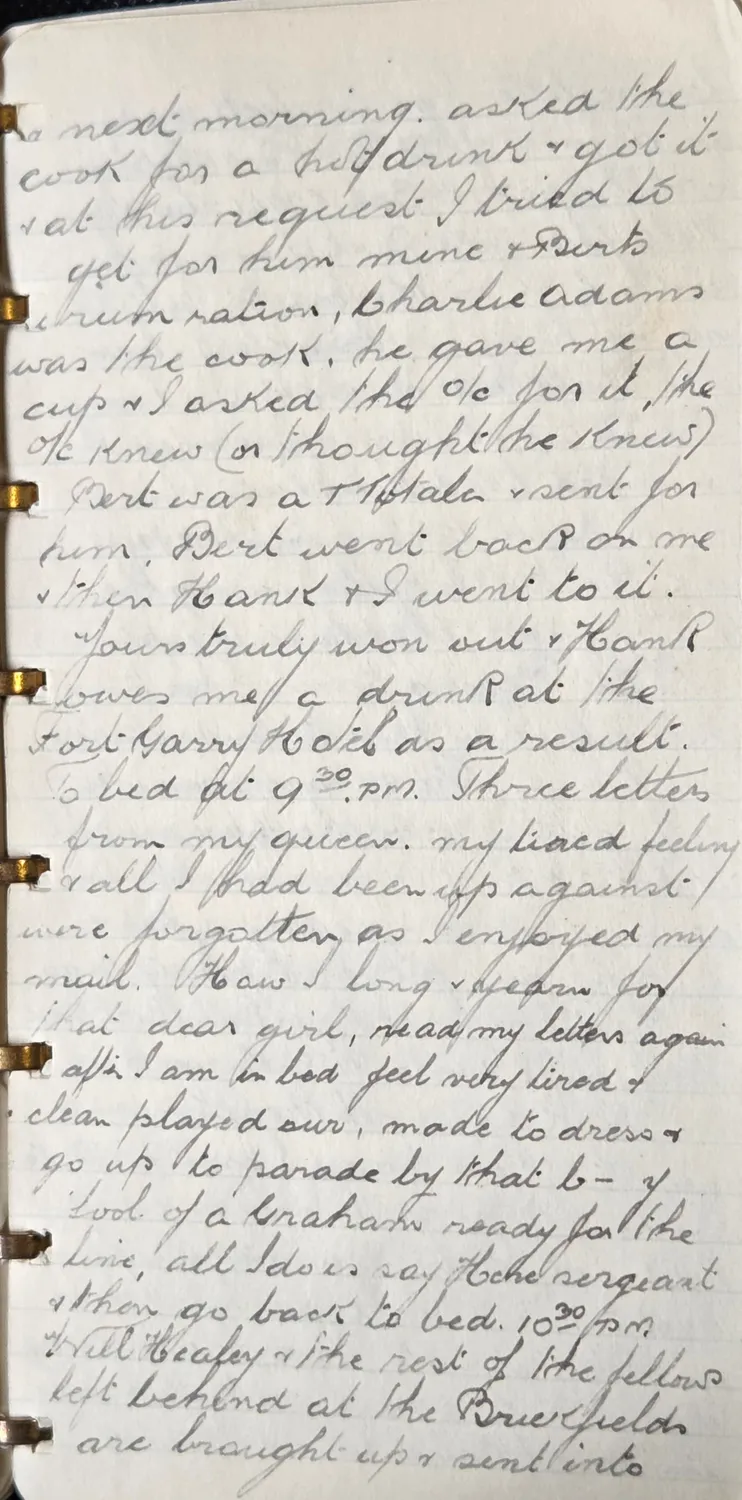 next morning. asked the
cook for a hot drink & got it
& at his request I tried to
get for him mine & Berts
rum ration, Charlie Adams
was the cook. he gave me a
cup & I asked the O/C for it, the
O/C knew (or thought he knew)
Bert was a T Totaler & sent for
him. Bert went back on me
& then Hank & I went to it.
Yours truly won out & Hank
owes me a drink at the
Fort Garry Hotel as a result.
To bed at 9 30 p.m. Three letters
from my queen. my tired feeling
& all I had been up against
were forgotten as I enjoyed my
mail. How I long & yearn for
that dear girl, read my letters again
after I am in bed feel very tired &
clean played our, made to dress &
go up to parade by that b- y
fool of a Graham ready for the
line, all I do is say Here sergeant
& then go back to bed. 10 30 p.m
Will Heafey & the rest of the fellows
left behind at the Brickfields
are brought up & sent into